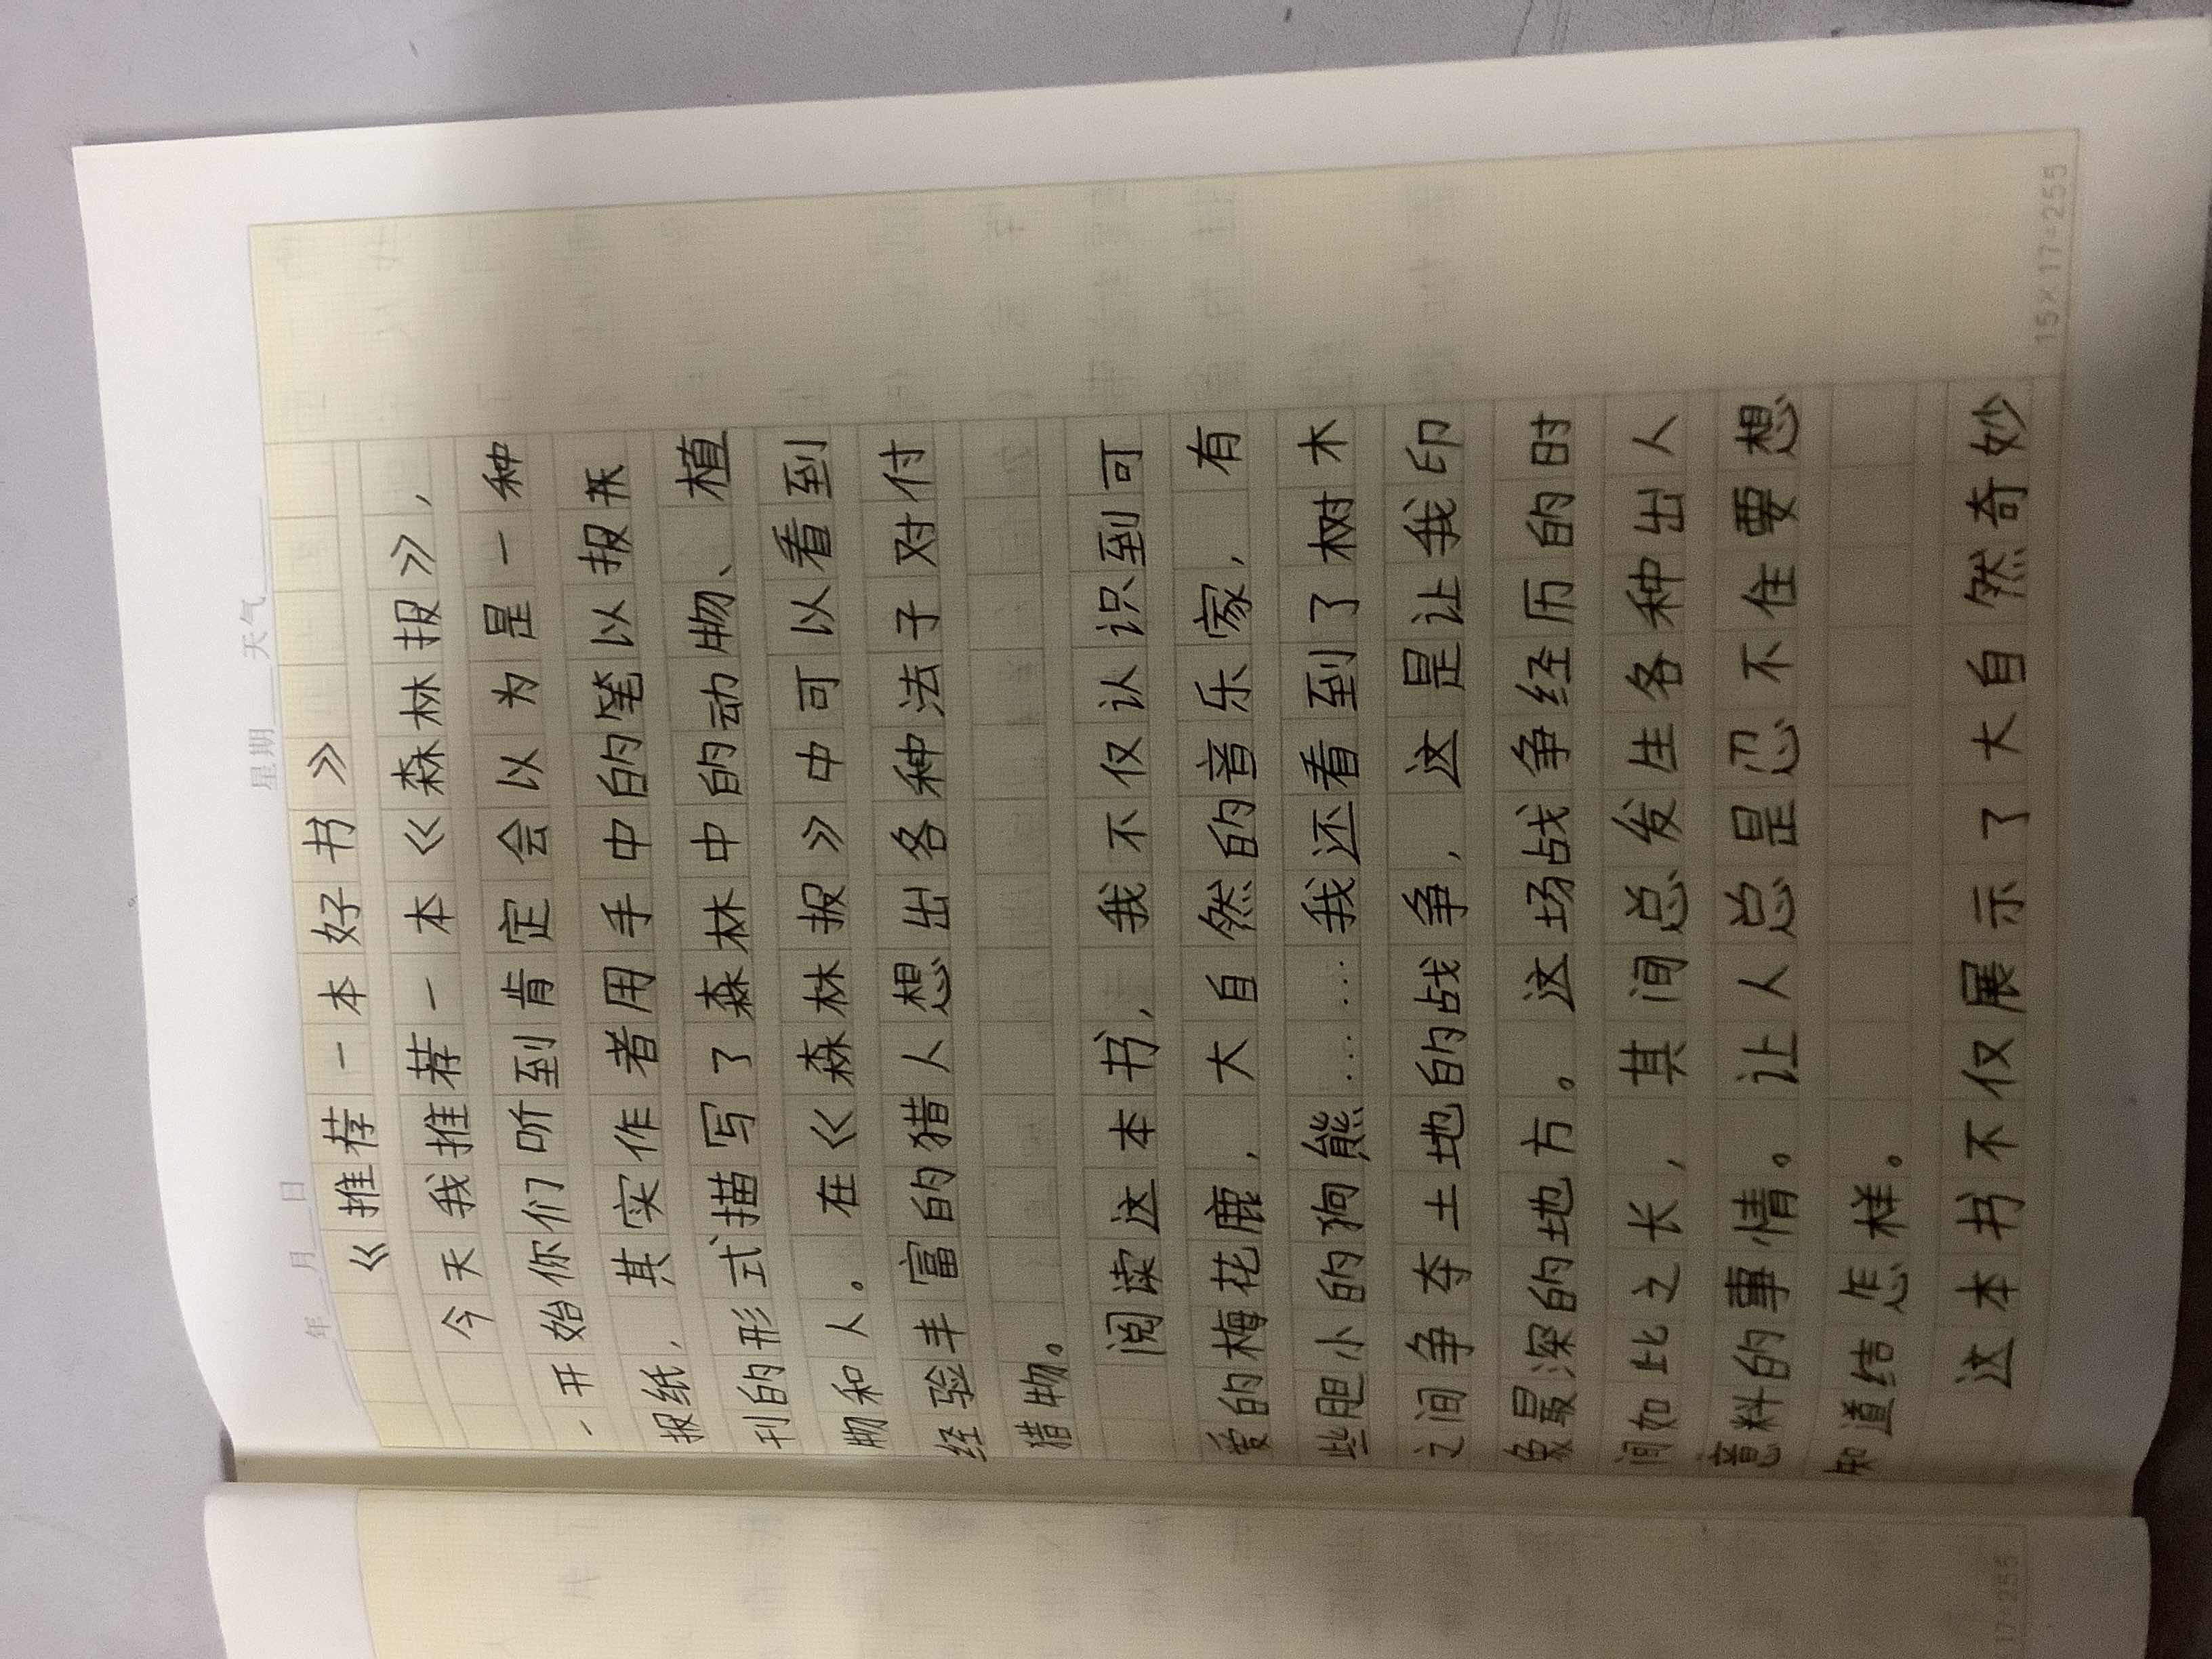 年 月 日 星期 天气
《推荐一本好书》
今天我推荐一本《森林报》，
一开始你们听到肯定会以为是一种
报纸，其实作者用手中的笔以报
刊的形式描写了森林中的动物、植
物和人。在《森林报》中可以看到
经验丰富的猎人想出各种法子对付
猎物。
阅读这本书，我不仅认识到可
爱的梅花鹿，大自然的音乐家，有
些胆小的狗熊……我还看到了树木
之间争夺土地的战争，这是让我印
象最深的地方。这场战争经历的时
间如比之长，其间总发生各种出人
意料的事情。让人总是忍不住要想
知道结怎样。
这本书不仅展示了大自然奇妙
15×17=255
17=255